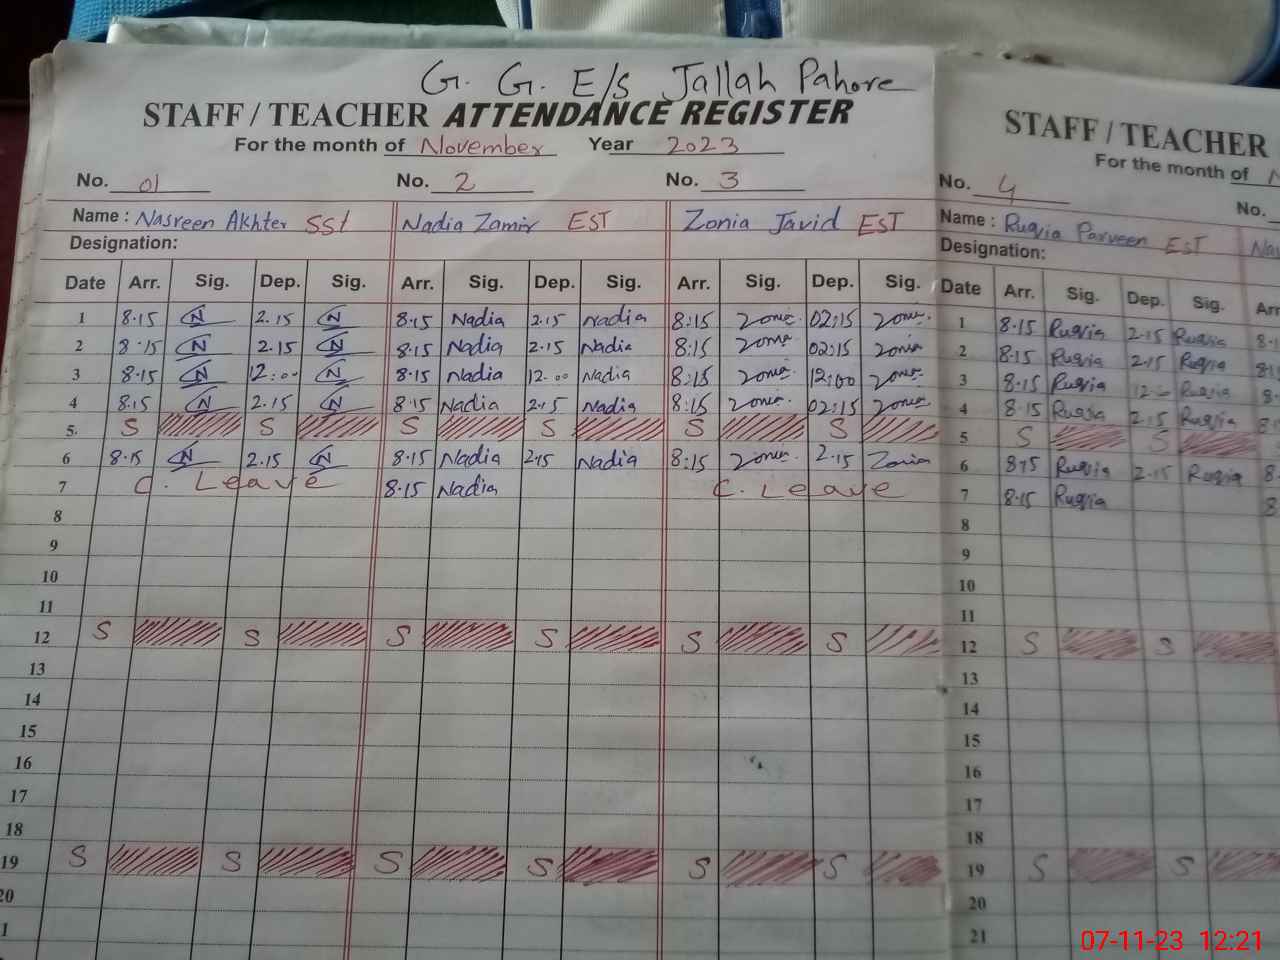 G. G. E/S Jallah Pahore
STAFF / TEACHER ATTENDANCE REGISTER
For the month of November Year 2023
No. 01 No. 2 No. 3
Name : Nasreen Akhter SST Nadia Zamir EST Zonia Javid EST
Designation:
Date Arr. Sig. Dep. Sig. Arr. Sig. Dep. Sig. Arr. Sig. Dep. Sig.
1 8.15 N 2.15 N 8.15 Nadia 2.15 Nadia 8:15 Zonia 02:15 Zonia
2 8.15 N 2.15 N 8.15 Nadia 2.15 Nadia 8:15 Zonia 02:15 Zonia
3 8.15 N 12:00 N 8.15 Nadia 12.00 Nadia 8:15 Zonia 12:00 Zonia
4 8.15 N 2.15 N 8.15 Nadia 2.15 Nadia 8:15 Zonia 02:15 Zonia
5. S S S S S S
6 8.15 N 2.15 N 8.15 Nadia 2.15 Nadia 8:15 Zonia 2.15 Zonia
7 C. Leave 8.15 Nadia C. Leave
8
9
10
11
12 S S S S S S
13
14
15
16
17
18
19 S S S S S S
20
1
STAFF / TEACHER
For the month of N
No. 4 No.
Name : Ruqia Parveen EST Nas
Designation:
Date Arr. Sig. Dep. Sig. Arr
1 8.15 Ruqia 2.15 Ruqia 8.1
2 8.15 Ruqia 2.15 Ruqia
3 8.15 Ruqia 12.00 Ruqia 8.
4 8.15 Ruqia 2.15 Ruqia
5 S S
6 815 Ruqia 2.15 Ruqia 8.
7 8.15 Ruqia 8
8
9
10
11
12 S S
13
14
15
16
17
18
19 S S
20
21
07-11-23 12:21